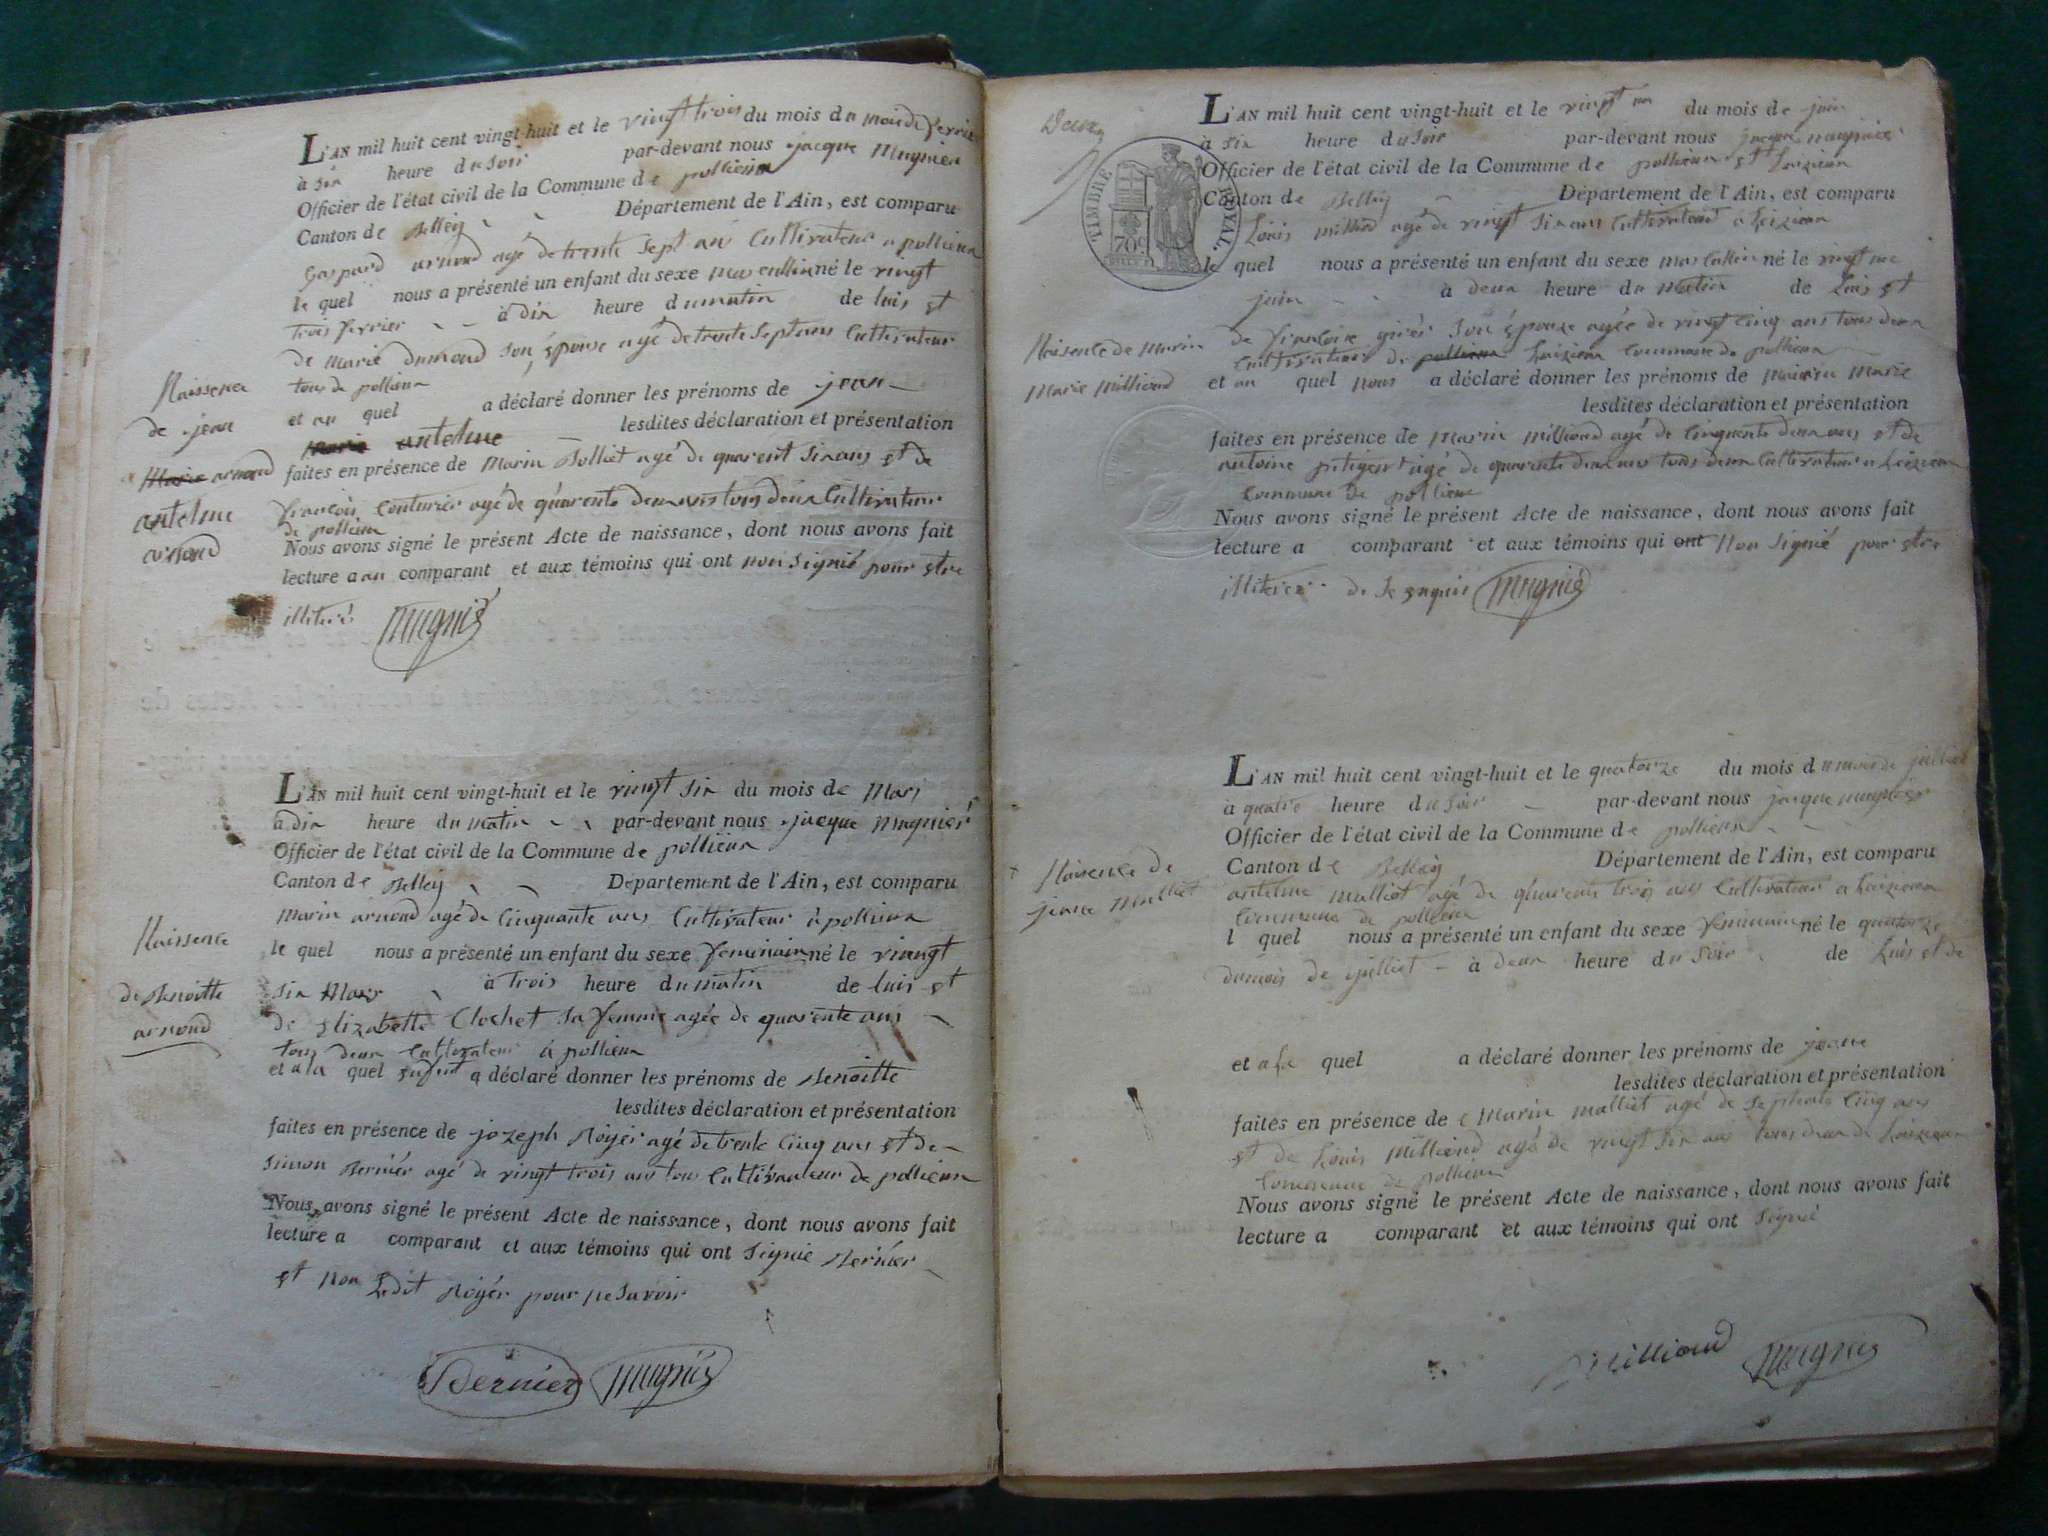 L'AN mil huit cent vingt-huit et le vingt trois du mois du mois de fevrier
à six heure du soir par-devant nous jacque Mugnier
Officier de l'état civil de la Commune de pollieux
Canton de Belley Département de l'Ain, est comparu
Gaspard arnod agé de trente sept ans Cultivateur a pollieux
le quel nous a présenté un enfant du sexe masculin né le vingt
trois fevrier à dix heure du matin de luis et
de Marie dumond son épouse agé de trente sept ans Cultivateur
tous de pollieux
Naissence
de jean
Marie arnod
antelme
arnod
et au quel a déclaré donner les prénoms de jean
Marie antelme lesdites déclaration et présentation
faites en présence de Marin Bolliet agé de quarent six ans et de
françois Couturier agé de quarente deux ans tous deux Cultivateur
de pollieux
Nous avons signé le présent Acte de naissance, dont nous avons fait
lecture a au comparant et aux témoins qui ont non signié pour etre
illitéré Mugnié
L'AN mil huit cent vingt-huit et le vingt six du mois de Mars
à dix heure du matin par-devant nous jacque Mugniér
Officier de l'état civil de la Commune de pollieux
Canton de Belley Département de l'Ain, est comparu
Marin arnod agé de Cinquante ans Cultivateur à pollieux
Naissence
de Benoitte
arnod
le quel nous a présenté un enfant du sexe feminain né le viengt
six Mars à trois heure du matin de luis et
de Elizabette Clochet sa femme agée de quarente ans
tous deux Cultivateur à pollieux
et a la quel enfent a déclaré donner les prénoms de Benoitte
lesdites déclaration et présentation
faites en présence de jozeph Royér agé de trente Cinq ans et de
Simon Bernier agé de vingt trois ans tous Cultivauteur de pollieux
Nous avons signé le présent Acte de naissance, dont nous avons fait
lecture a comparant et aux témoins qui ont signié Bernier
et non Ledit Royér pour ne savoir
Bernier Mugnié
Deux
TIMBRE ROYAL.
70c
L'AN mil huit cent vingt-huit et le vingt un du mois de juin
à six heure du soir par-devant nous jacque mugnier
Officier de l'état civil de la Commune de pollieux et Loizieux
Canton de Belley Département de l'Ain, est comparu
Louis milliod agé de vingt six ans Cultivateur a Loizieux
le quel nous a présenté un enfant du sexe masculin né le vingt un
juin à deux heure du matin de Luis et
Naisence de Marin
Marie Milliand
de françoise son épouse agée de vingt Cinq ans tous deux
Cultivateur de pollieux Loizieux Commune de pollieux
et au quel nous a déclaré donner les prénoms de Marie
lesdites déclaration et présentation
faites en présence de Marin milliand agé de Cinquente deux ans et de
antoine agé de quarente deux ans tous deux Cultivateur a Loizieux
Commune de pollieux
Nous avons signé le présent Acte de naissance, dont nous avons fait
lecture a comparant et aux témoins qui ont non signié pour etre
illiterer de se enquis Mugnié
L'AN mil huit cent vingt-huit et le quatorze du mois du mois de juilliet
à quatre heure du soir par-devant nous jacque mugnier
Officier de l'état civil de la Commune de pollieux
Canton de Belley Département de l'Ain, est comparu
Naisence de
jeane Malliet
antelme malliet agé de quarent trois ans Cultivateur a Loizieux
Commune de pollieux
l quel nous a présenté un enfant du sexe feminain né le quatorze
du mois de juilliet à deux heure du soir de Luis et de
et a la quel a déclaré donner les prénoms de jeane
lesdites déclaration et présentation
faites en présence de Marin malliet agé de septente Cinq ans
et de Louis Milliand agé de vingt six ans tous deux de Loizieux
Commune de pollieux
Nous avons signé le présent Acte de naissance, dont nous avons fait
lecture a comparant et aux témoins qui ont signié
Milliand Mugnié